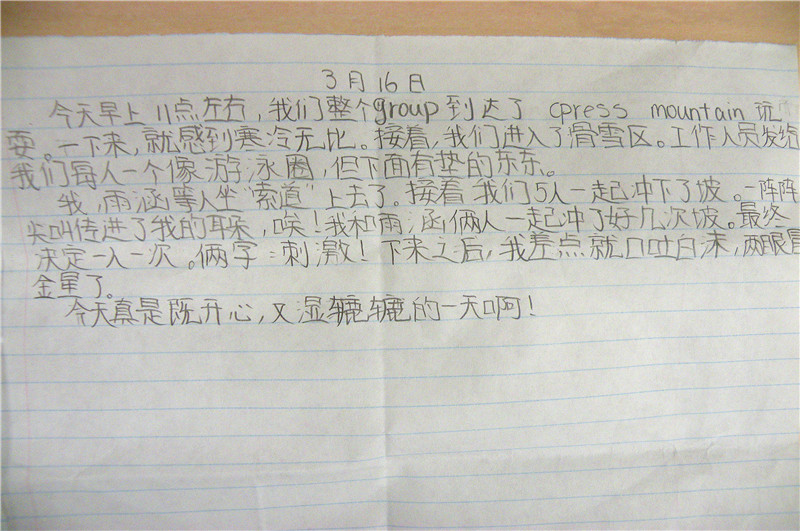 3月16日
今天早上11点左右,我们整个group到达了 cpress mountain 玩
耍。一下来,就感到寒冷无比。接着,我们进入了滑雪区。工作人员发给
我们每人一个像游泳圈,但下面有垫的东东。
我,雨涵等人坐“索道”上去了。接着我们5人一起冲下了坡。一阵阵
尖叫传进了我的耳朵,唉!我和雨涵俩人一起冲了好几次坡。最终
决定一人一次。俩字:刺激!下来之后,我差点就口吐白沫,两眼冒
金星了。
今天真是既开心,又湿辘辘的一天啊!